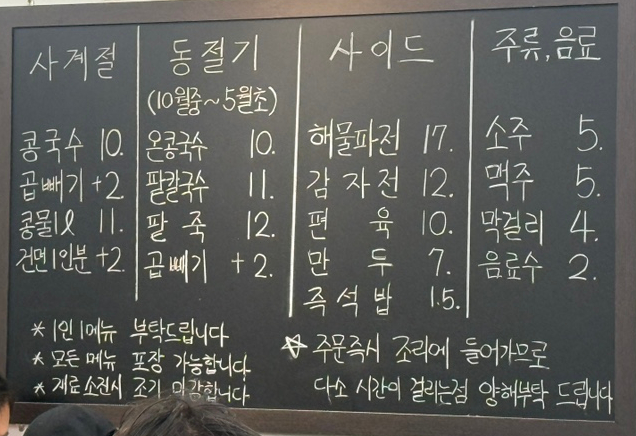 사계절
콩국수 10.
곱빼기 +2.
콩물1ℓ 11.
건면1인분 +2.
동절기
(10월중~5월초)
온콩국수 10.
팥칼국수 11.
팥 죽 12.
곱빼기 +2.
사이드
해물파전 17.
감자전 12.
편 육 10.
만 두 7.
즉석밥 1.5.
주류,음료
소주 5.
맥주 5.
막걸리 4.
음료수 2.
* 1인 1메뉴 부탁드립니다
* 모든 메뉴 포장 가능합니다
* 재료 소진시 조기 마감합니다
☆ 주문즉시 조리에 들어가므로
다소 시간이 걸리는점 양해부탁 드립니다